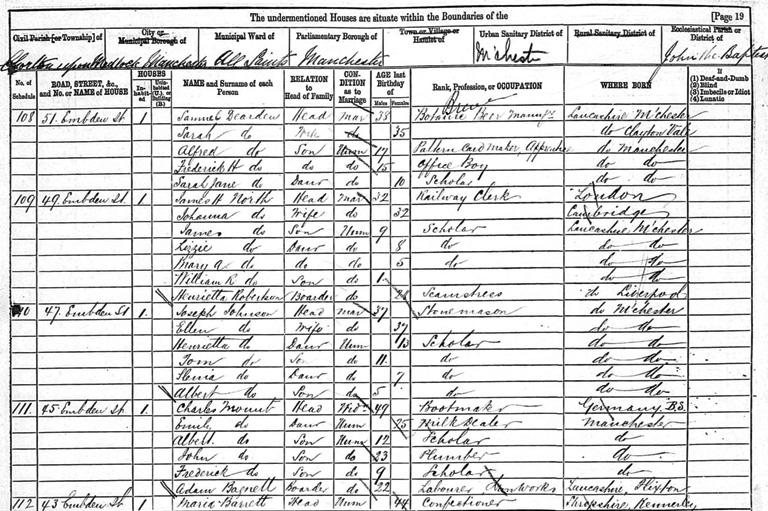 The undermentioned Houses are situate within the Boundaries of the [Page 19
Civil Parish [or Township] of City or Municipal Borough of Municipal Ward of Parliamentary Borough of Town or Village or Hamlet of Urban Sanitary District of Rural Sanitary District of Ecclesiastical Parish or District of
Chorlton upon Medlock Manchester All Saints Manchester M'chester John the Baptist
No. of Schedule ROAD, STREET, &c., and No. or NAME of HOUSE HOUSES Inhabited Uninhabited (U.), or Building (B.) NAME and Surname of each Person RELATION to Head of Family CONDITION as to Marriage AGE last Birthday of Males Females Rank, Profession, or OCCUPATION WHERE BORN If (1) Deaf-and-Dumb (2) Blind (3) Imbecile or Idiot (4) Lunatic
108 51. Embden St 1 Samuel Dearden Head Mar 38 Botanic Beer Manufr Lancashire M'chester
Sarah do Wife do 35 do Clayton Vale
Alfred do Son Unm 17 Pattern Card Maker Apprentice do Manchester
Frederick H do do do 15 Office Boy do do
Sarah Jane do Daur do 10 Scholar do do
109 49. Embden St 1 James H North Head Mar 32 Railway Clerk London
Johanna do Wife do 32 Cambridge
James do Son Unm 9 Scholar Lancashire M'chester
Lizzie do Daur do 8 do do do
Mary A do do do 5 do do do
William R do Son do 1 do do
Henrietta Robertson Boarder do 28 Seamstress do Liverpool
110 47. Embden St 1 Joseph Johnson Head Mar 37 Stonemason do M'chester
Ellen do Wife do 37 do do
Henrietta do Daur Unm 13 Scholar do do
Tom do Son do 11 do do do
do Daur do 7 do do do
Albert do Son do 5 do do do
111 45 Embden St 1 Charles Mount Head Wid 49 Bootmaker Germany B.S.
Emily do Daur Unm 25 Milk Dealer Manchester
Albert do Son Unm 12 Scholar do
John do Son do 23 Plumber do
Frederick do Son do 9 Scholar do
Adam Bagnett Boarder do 22 Labourer Works Lancashire, Flixton
112 43 Embden St 1 Maria Barrett Head Unm 44 Confectioner Shropshire, Kennerley